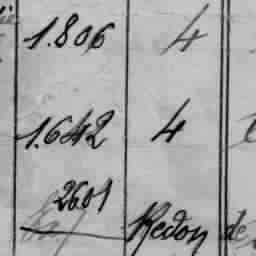 1.806 4
1.642 4
2601
Redon de